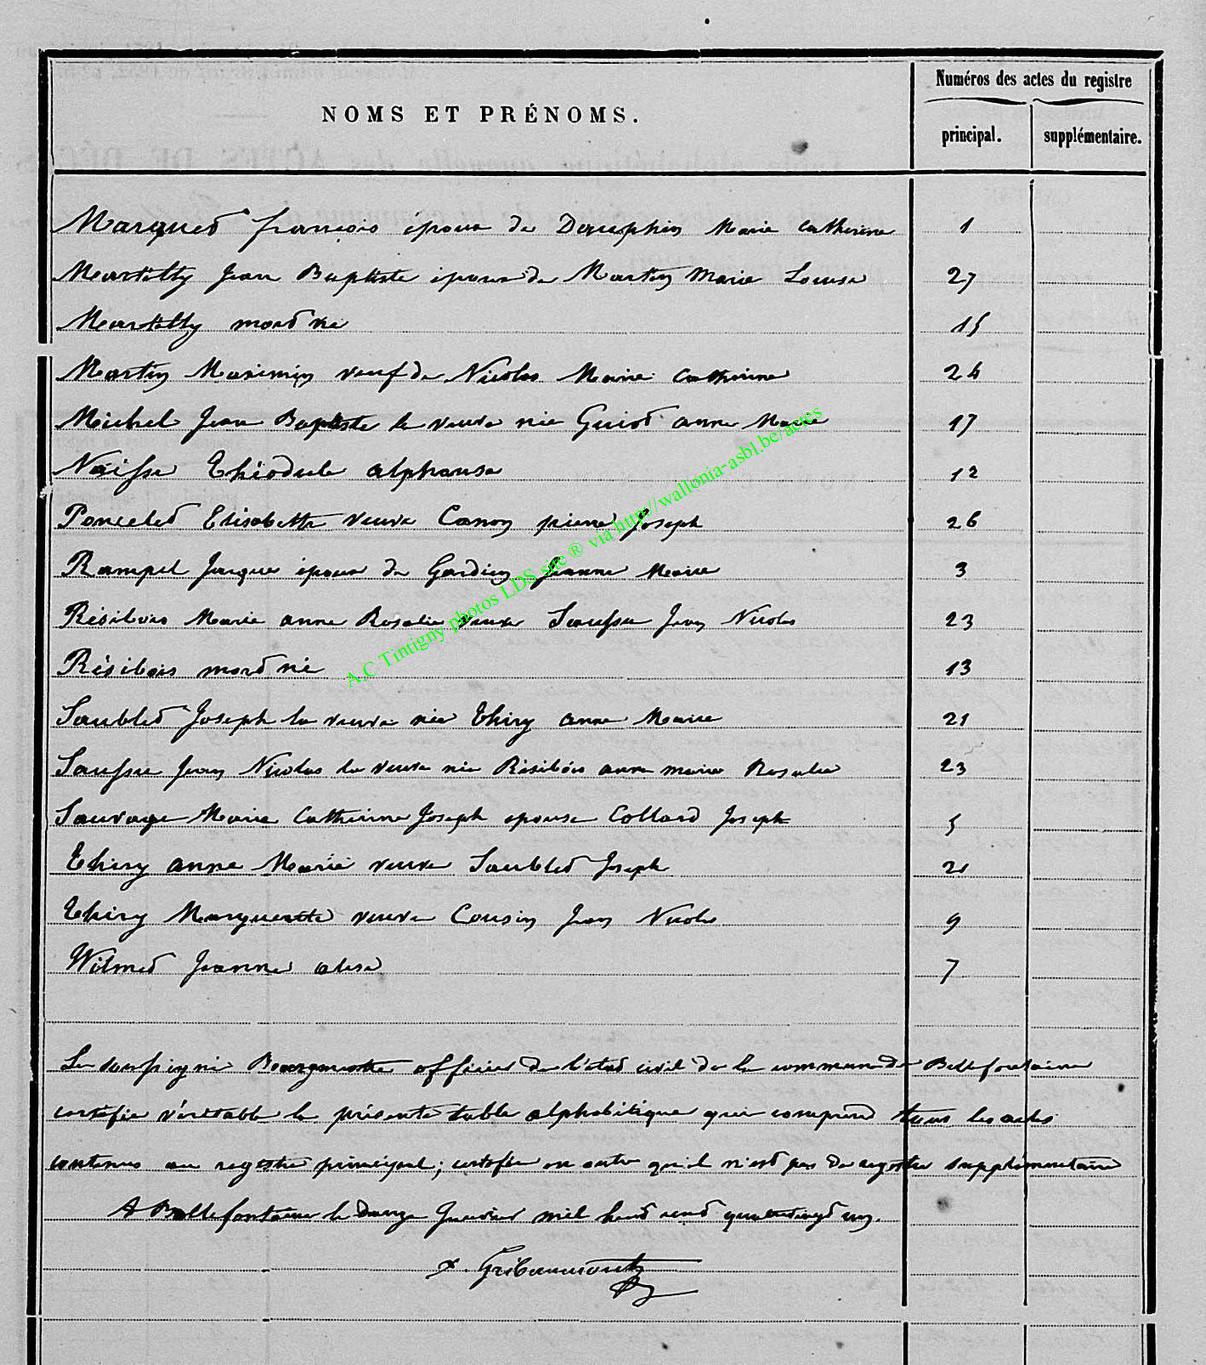 Numéros des actes du registre
NOMS ET PRÉNOMS.
principal. supplémentaire.
Marquet françois époux de Dauphin Marie Catherine 1
Martilly Jean Baptiste époux de Martin Marie Louise 27
Martilly mort né 15
Martin Maximin veuf de Nicolas Marie Catherine 24
Michel Jean Baptiste la veuve née Guiot anne Marie 17
Naisse Théodule alphonse 12
Poncelet Elisabette veuve Canon pierre Joseph 26
Rampel Jacque époux de Gardien Jeanne Marie 3
Résibois Marie anne Rosalie veuve Saussu Jean Nicolas 23
Résibois mort né 13
Saublet Joseph la veuve née Thiry anne Marie 21
Saussu Jean Nicolas la veuve née Résibois anne marie Rosalie 23
Sauvage Marie Catherine Joseph épouse Collard Joseph 5
Thiry anne Marie veuve Saublet Joseph 21
Thiry Marguerite veuve Cousin Jean Nicolas 9
Wilmet Jeanne 7
Le soussigné Bourgmestre officier de l'état civil de la commune de Bellefontaine
certifie véritable la présente table alphabétique qui comprend tous les actes
contenus au registre principal; certifie en outre qu'il n'est pas de registre supplémentaire
A Bellefontaine le douze Janvier mil huit cent quatrevingt un.
A.C Tintigny photos LDS site ® via http://wallonia-asbl.be/actes